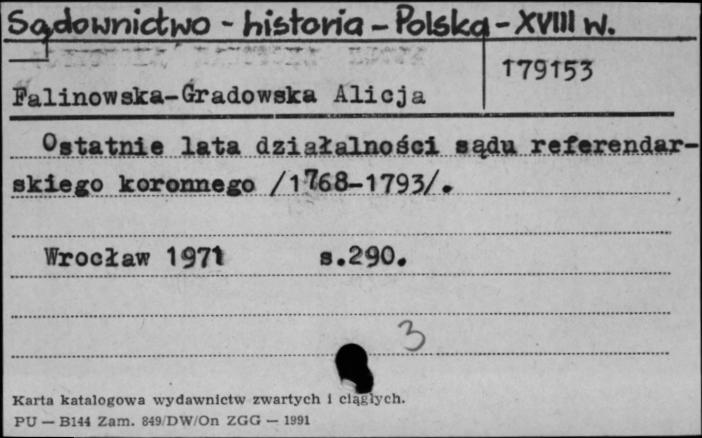 Sądownictwo - historia - Polska - XVIII w.
179153
Falinowska-Gradowska Alicja
Ostatnie lata działalności sądu referendar-
skiego koronnego /1768-1793/.
Wrocław 1971 s.290.
3
Karta katalogowa wydawnictw zwartych i ciągłych.
PU — B144 Zam. 849/DW/On ZGG — 1991